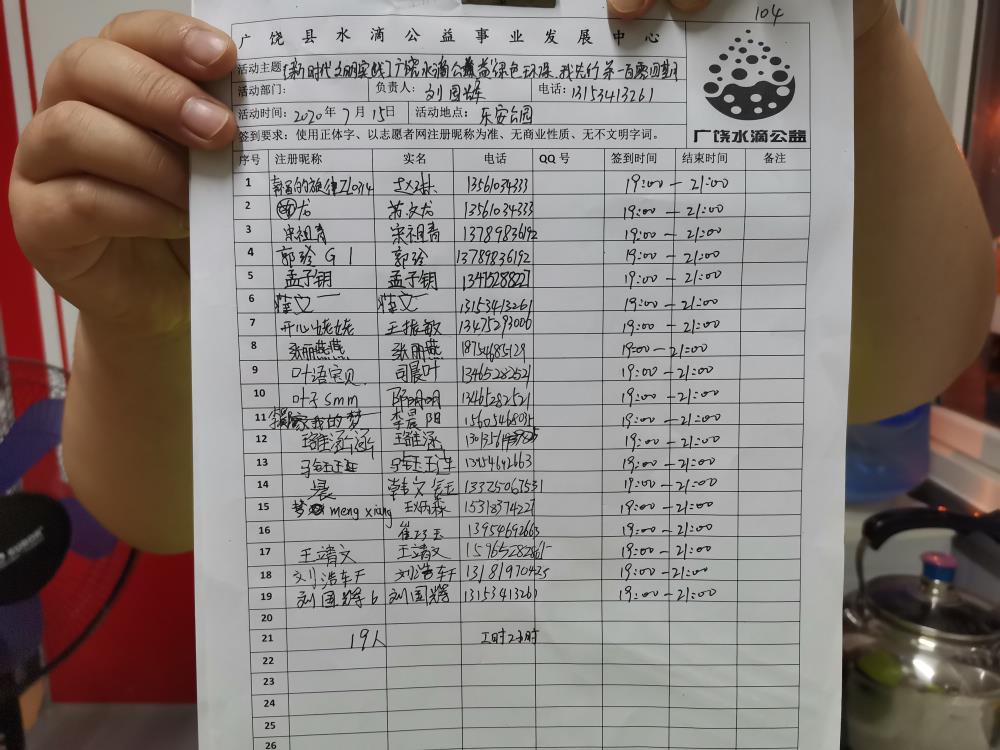 104
广饶县水滴公益事业发展中心
活动主题:[新时代文明实践]广饶水滴公益绿色环保,我先行第一百零四期
活动部门: 负责人:刘国辉 电话:13153413261
活动时间:2020年7月15日 活动地点:乐安公园
签到要求:使用正体字、以志愿者网注册昵称为准、无商业性质、无不文明字词。
广饶水滴公益
序号 注册昵称 实名 电话 QQ号 签到时间 结束时间 备注
1 13561034333 19:00 — 21:00
2 龙 苏文龙 13561034333 19:00 — 21:00
3 宋祖青 宋祖青 13789836192 19:00 — 21:00
4 郭玲G1 郭玲 13789836192 19:00 — 21:00
5 孟子钥 孟子钥 19:00 — 21:00
6 薛文一 薛文一 13153413261 19:00 — 21:00
7 开心姥姥 王振敏 13475293006 19:00 — 21:00
8 张丽燕燕 张丽燕 18754685129 19:00 — 21:00
9 叶语宝贝 司晨叶 13465282521 19:00 — 21:00
10 叶子smm 13465282521 19:00 — 21:00
11 我的梦 李晨阳 19:00 — 21:00
12 19:00 — 21:00
13 19:00 — 21:00
14 韩文钰 13325067531 19:00 — 21:00
15 梦 meng xiang 15318374227 19:00 — 21:00
16 崔巧玉 13954692663 19:00 — 21:00
17 王靖文 王靖文 19:00 — 21:00
18 刘浩轩 刘浩轩 13181970425 19:00 — 21:00
19 刘国辉6 刘国辉 13153413261 19:00 — 21:00
20
21 19人 工时2小时
22
23
24
25
26